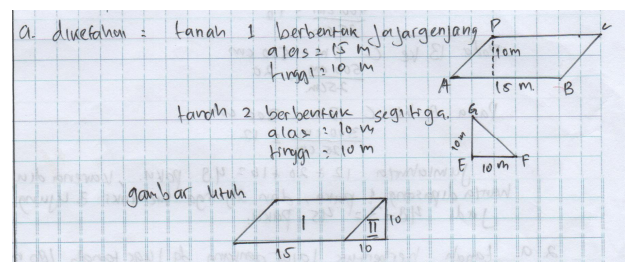 a. diketahui : tanah 1 berbentuk jajargenjang
alas = 15 m
tinggi = 10 m
D C
10m
A 15 m B
tanah 2 berbentuk segitiga.
alas : 10 m
tinggi : 10 m
G
10m
E 10 m F
gambar utuh
I II 10
15 10